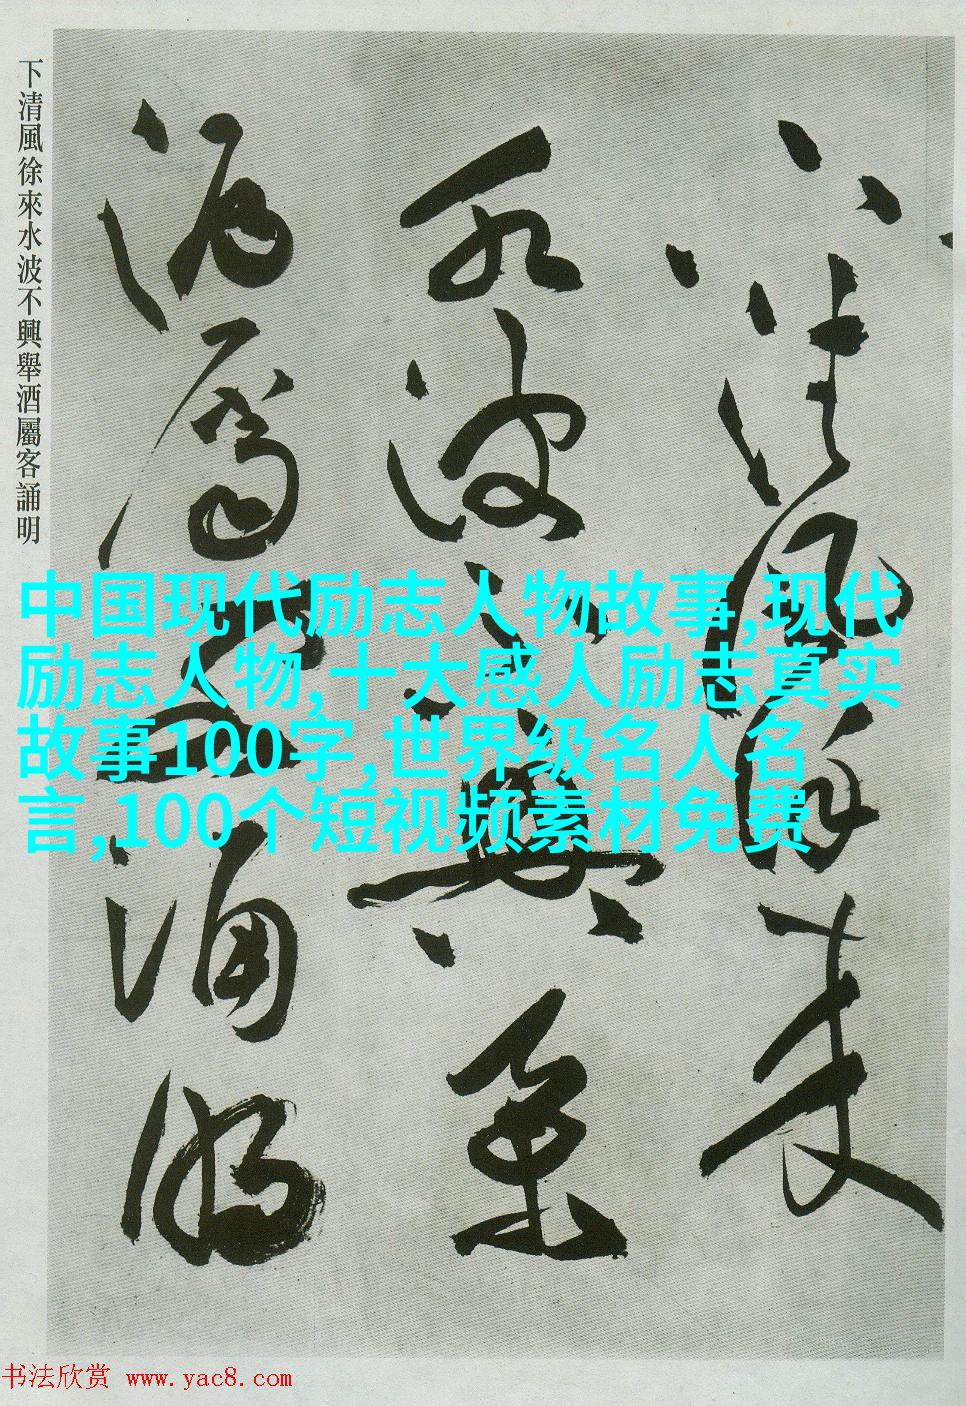 下清風徐來
水波不興舉
酒屬客誦明
下清風徐來水波不興舉酒屬客誦明
中国现代励志人物故事,现代
励志人物,十大感人励志真实
故事100字,世界级名人名
言,100个短视频素材免费
书法欣赏 www.yac8.com